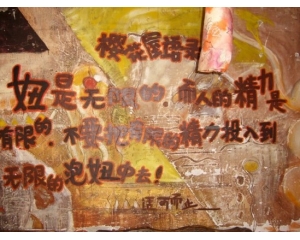 妞是无限的，而人的精力是
有限的，不要把有限的精力投入到
无限的泡妞中去！